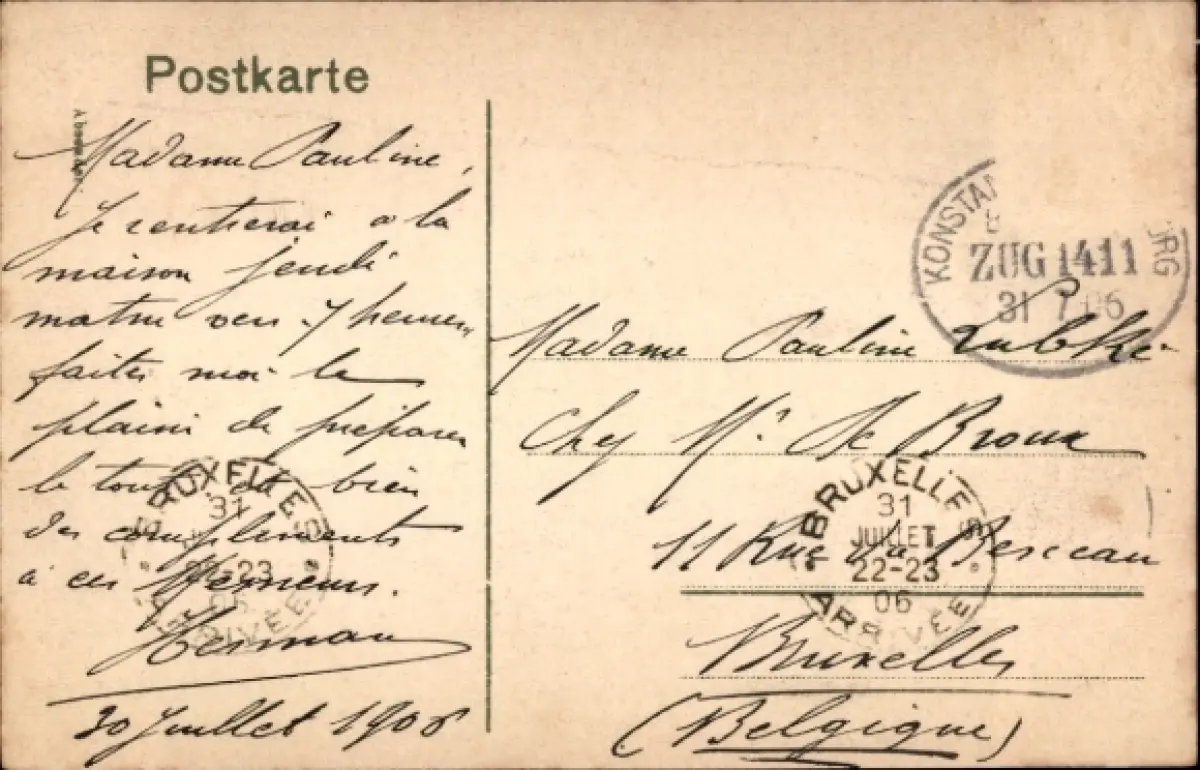 Postkarte
Madame Pauline,
Je rentrerai a la
maison jeudi
matin vers 7 heures
faites moi le
plaisir de préparer
le tout et bien
des compliments
à ces Messieurs.
Herman
30 Juillet 1906
KONSTAN
ZUG 1411
31 7 06
Madame Pauline Lubke
Chez Mr De Broux
11 Rue du Berceau
Bruxelles
(Belgique)
BRUXELLES
31
JUILLET
22-23
06
ARRIVÉE
BRUXELLES
31
22-23
ARRIVÉE